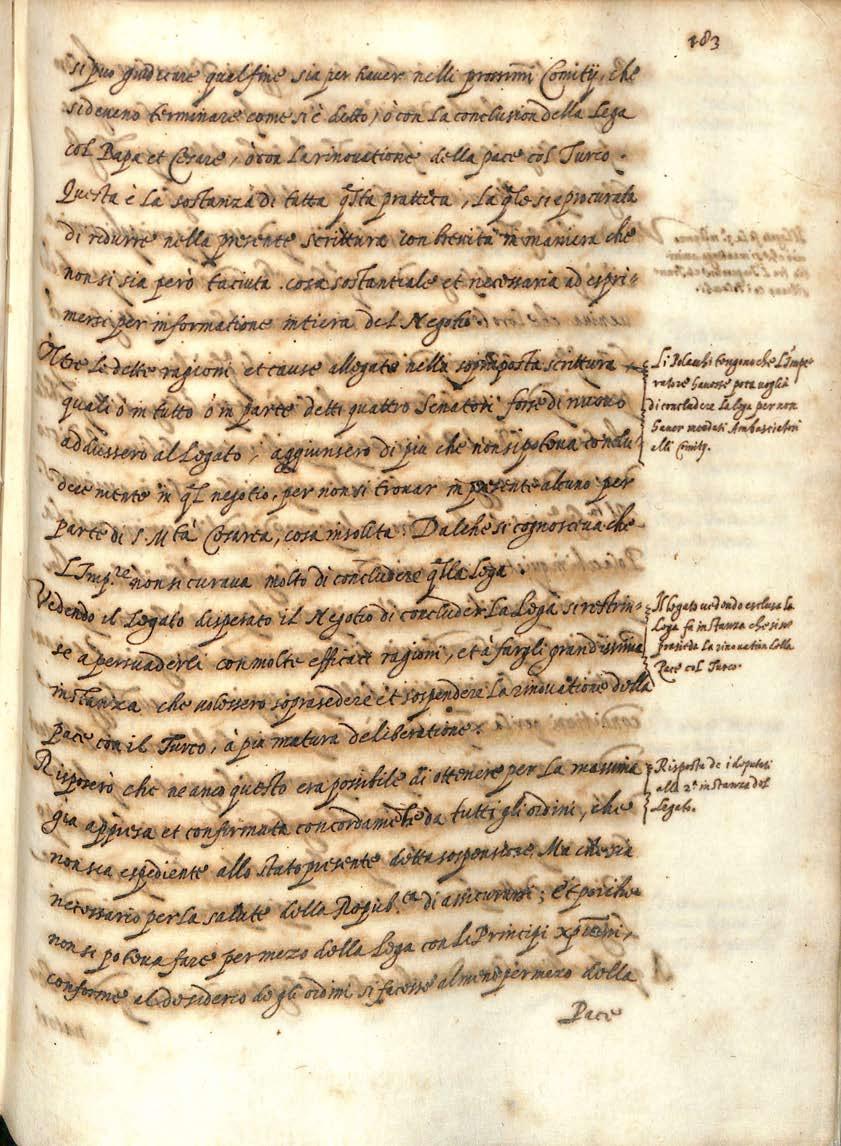 183
si può giudicare qual fine sia per havere nelli prossimi Comitij, che
si deveno terminare come si è detto, ò con la conclusion della Lega
col Papa et Cesare, ò con la rinovatione della pace col Turco.
Questa è la sostanza di tutta q̃sta prattica, la q̃le si è procurata
di ridurre nella presente scrittura con brevità in maniera che
non si sia però taciuta cosa sostantiale et necessaria ad espri=
mersi per informatione intiera del Negotio.
Oltre le dette ragioni et cause allegate nella sopraposta scrittura
quali ò in tutto ò in parte detti quattro Senatori forse di nuovo
addussero al Legato, aggiunsero di più che non si poteva conclu=
dere niente in q̃l negotio, per non si trovar in presente alcuno per
parte di S. Mtà Cesarea, cosa insolita. Dal che si cognosceva che
L'Imp.re non si curava molto di concludere q̃sta Lega.
Vedendo il Legato disperato il Negotio di concluder la Lega si restrin=
se a persuaderli con molte efficaci ragioni, et à fargli grandissima
instanza che volessero soprasedere et sospendere la rinovatione della
pace con il Turco, à più matura deliberatione.
Risposero che ne anco questo era possibile di ottenere per la massima
già appresa et confirmata concordamẽte da tutti gli ordini, che
non sia espediente allo stato presente detta sospensione. Ma che sia
necessario per la salute della Repub.ca di assicurarsi; Et poiche
non si poteva fare per mezo della Lega con li Principi xp̃iani,
conforme al desiderio de gli ordini si facesse almeno per mezo della
Pace
Li Polacchi tengono che L'Impe=
ratore havesse poca voglia
di concludere la lega per non
haver mandati Ambasciatori
alli Comitij.
Il legato vedendo esclusa la
Lega fa instanza che si so=
praseda la rinovation della
Pace col Turco.
Risposta de i deputati
alla 2.a instanza del
Legato.